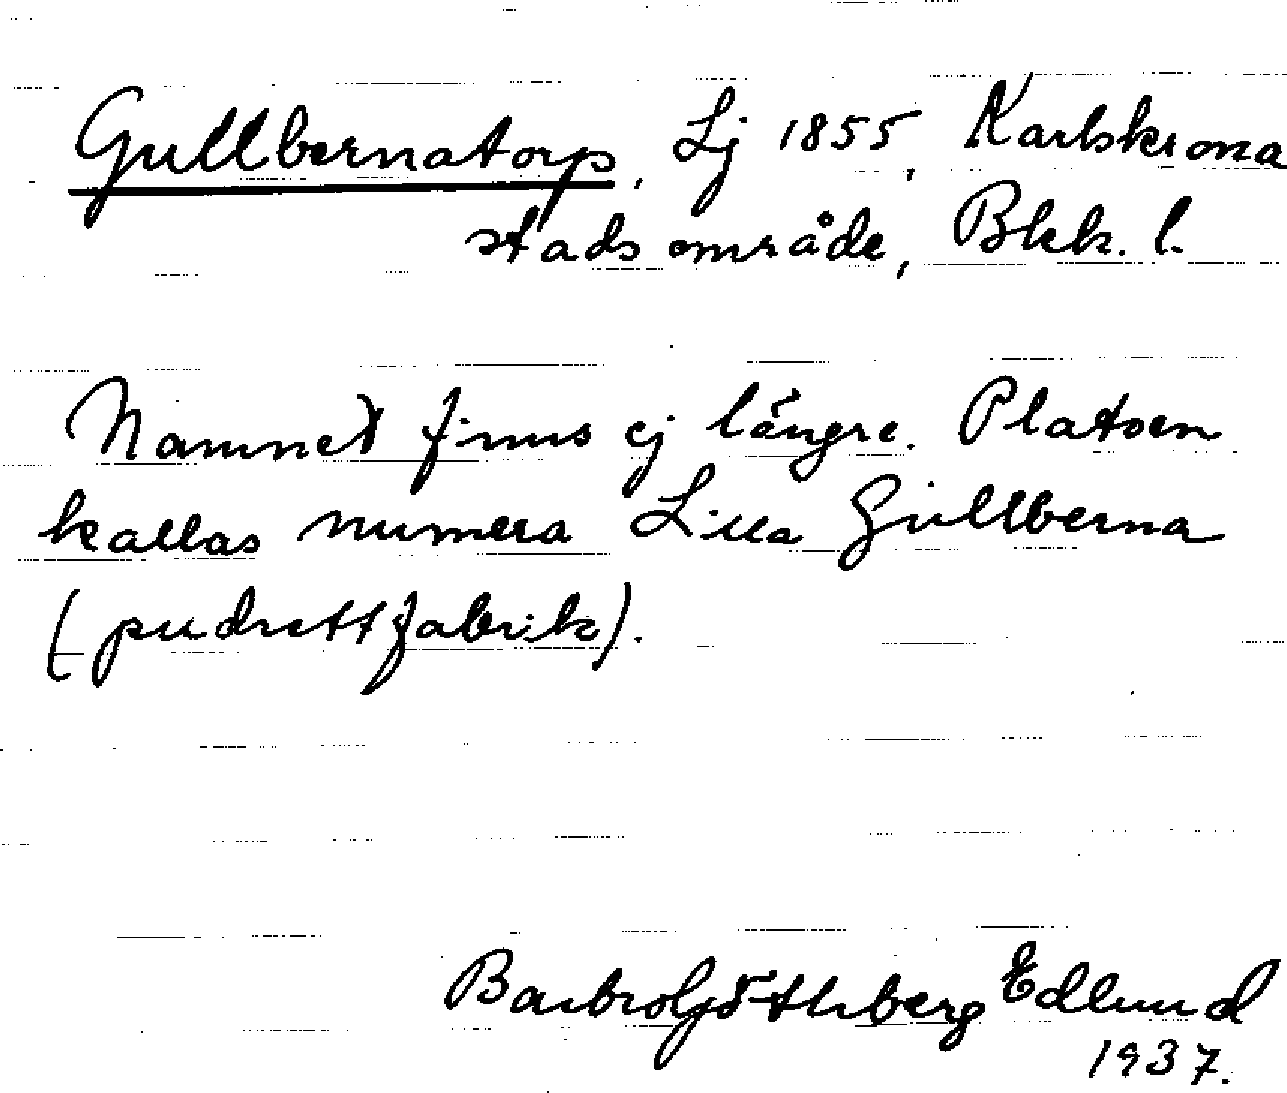 Gullbernatorp, Lj 1855, Karlskrona
stadsområde, Blek. l.
Namnet finns ej längre. Platsen
kallas numera Lilla Gullberna
(pudrettfabrik).
Barbro Göthberg Edlund
1937.